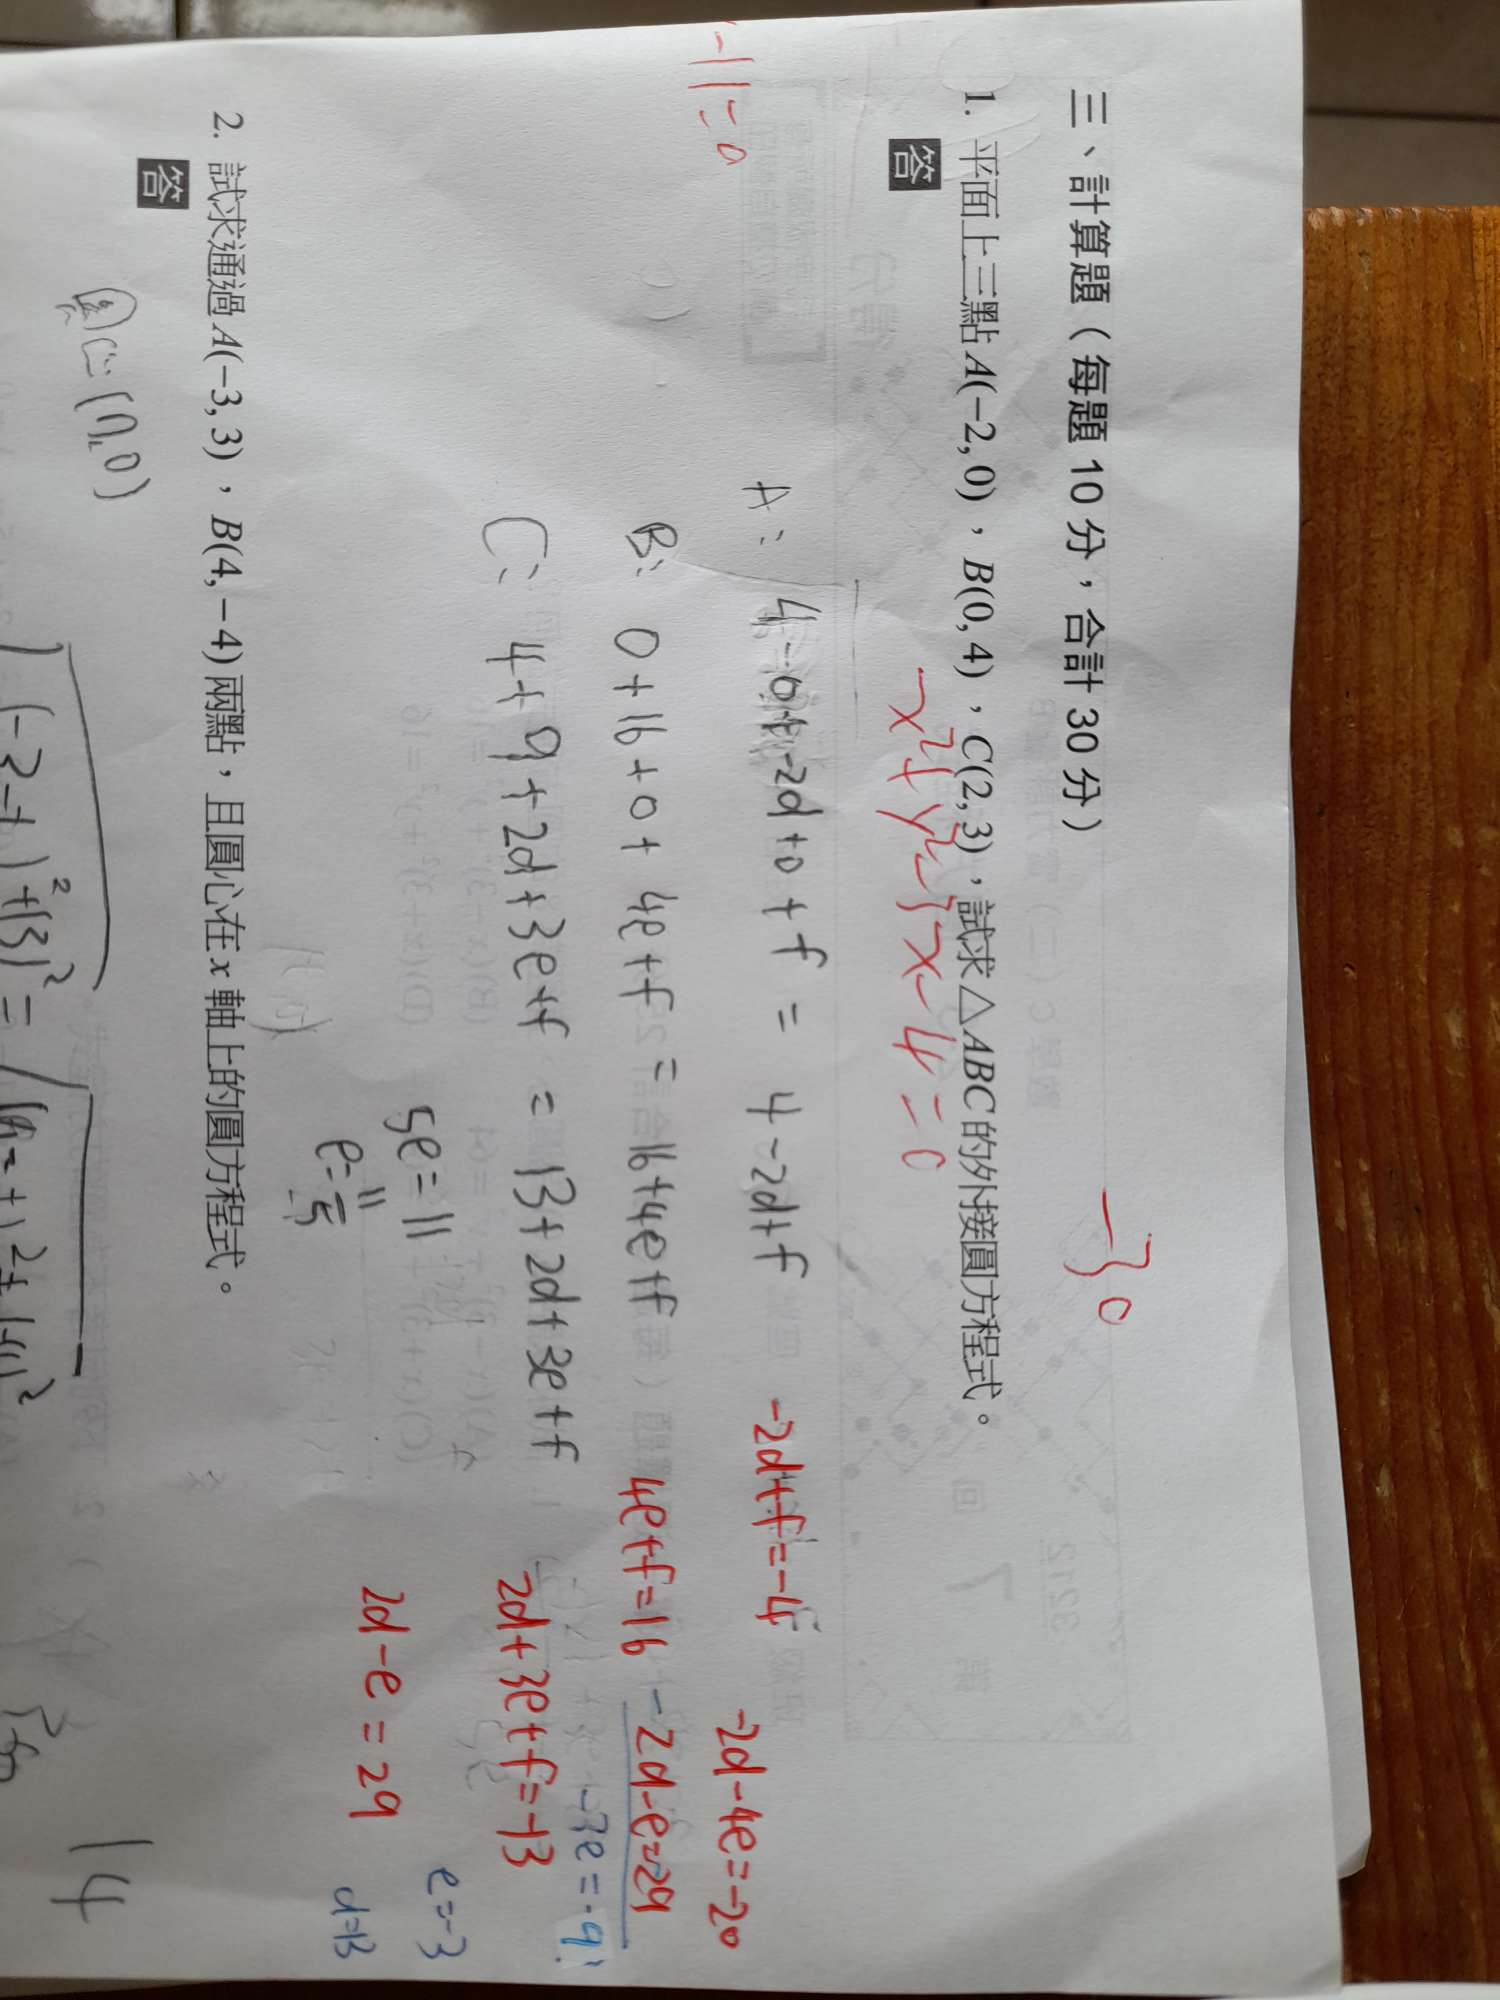 三、計算題（每題 10 分，合計 30 分）
-30
1. 平面上三點 A(−2, 0)，B(0, 4)，C(2, 3)，試求△ABC 的外接圓方程式。
答
x²+y²-3x-4=0
-11=0
A: 4-0+-2d+0+f = 4-2d+f
-2d+f=-4
-2d-4e=-20
B: 0+16+0+4e+f = 16+4e+f
4e+f=16
-2d-e=29
C: 4+9+2d+3e+f = 13+2d+3e+f
2d+3e+f=-13
-3e=-9
5e=11
2d-e=29
e=-3
d=13
2. 試求通過 A(−3, 3)，B(4, −4) 兩點，且圓心在 x 軸上的圓方程式。
答
圓心(n,0)
14